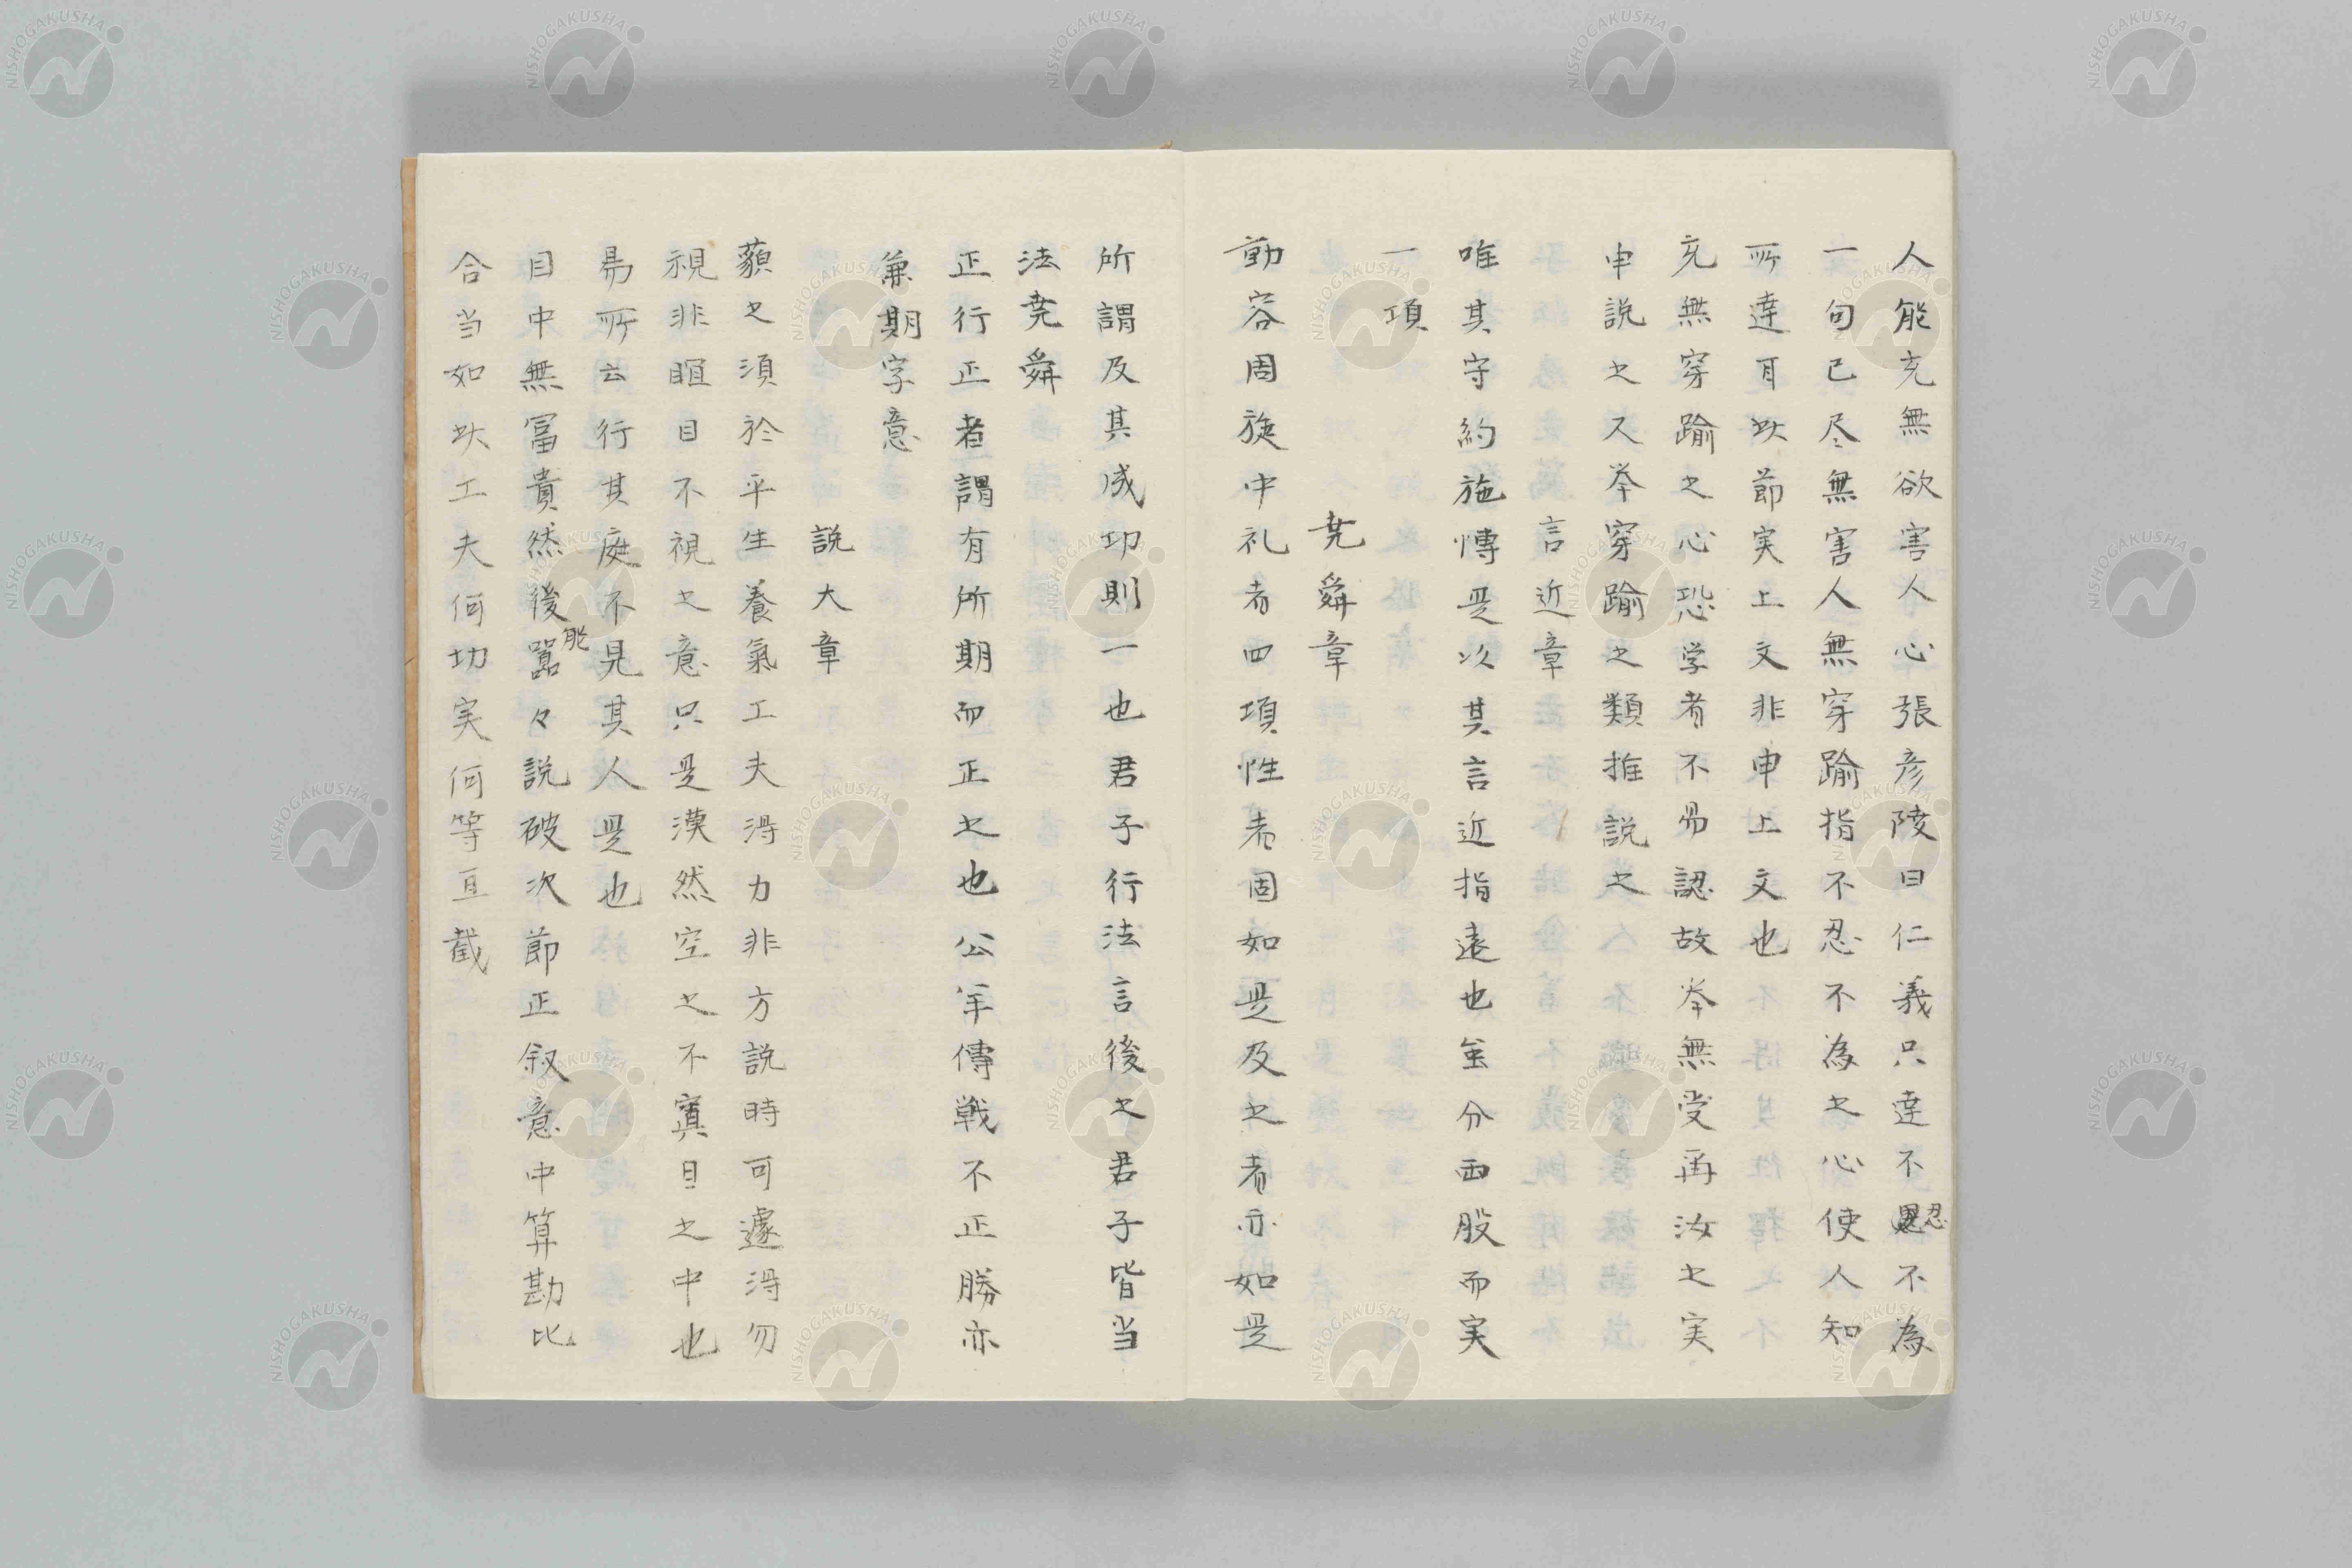 人能充無欲害人心張彦陵曰仁義只達不忍不為
一句已尽無害人無穿踰指不忍不為之心使人知
所達耳此節実上文非申上文也
充無穿踰之心恐学者不易認故挙無受再汝之実
申説之又挙穿踰之類推説之
言近章
唯其守約施博是以其言近指遠也虽分両股而実
一項
堯舜章
動容周旋中礼者四項性者固如是及之者亦如是
所謂及其成功則一也君子行法言後之君子皆当
法堯舜
正行正者謂有所期而正之也公羊傳戦不正勝亦
兼期字意
説大章
藐之須於平生養氣工夫得力非方説時可遽得勿
視非瞑目不視之意只是漠然空之不寘目之中也
易所云行其庭不見其人是也
目中無冨貴然後能嚣々説破次節正叙意中算勘比
合当如此工夫何切実何等直截
NISHOGAKUSHA